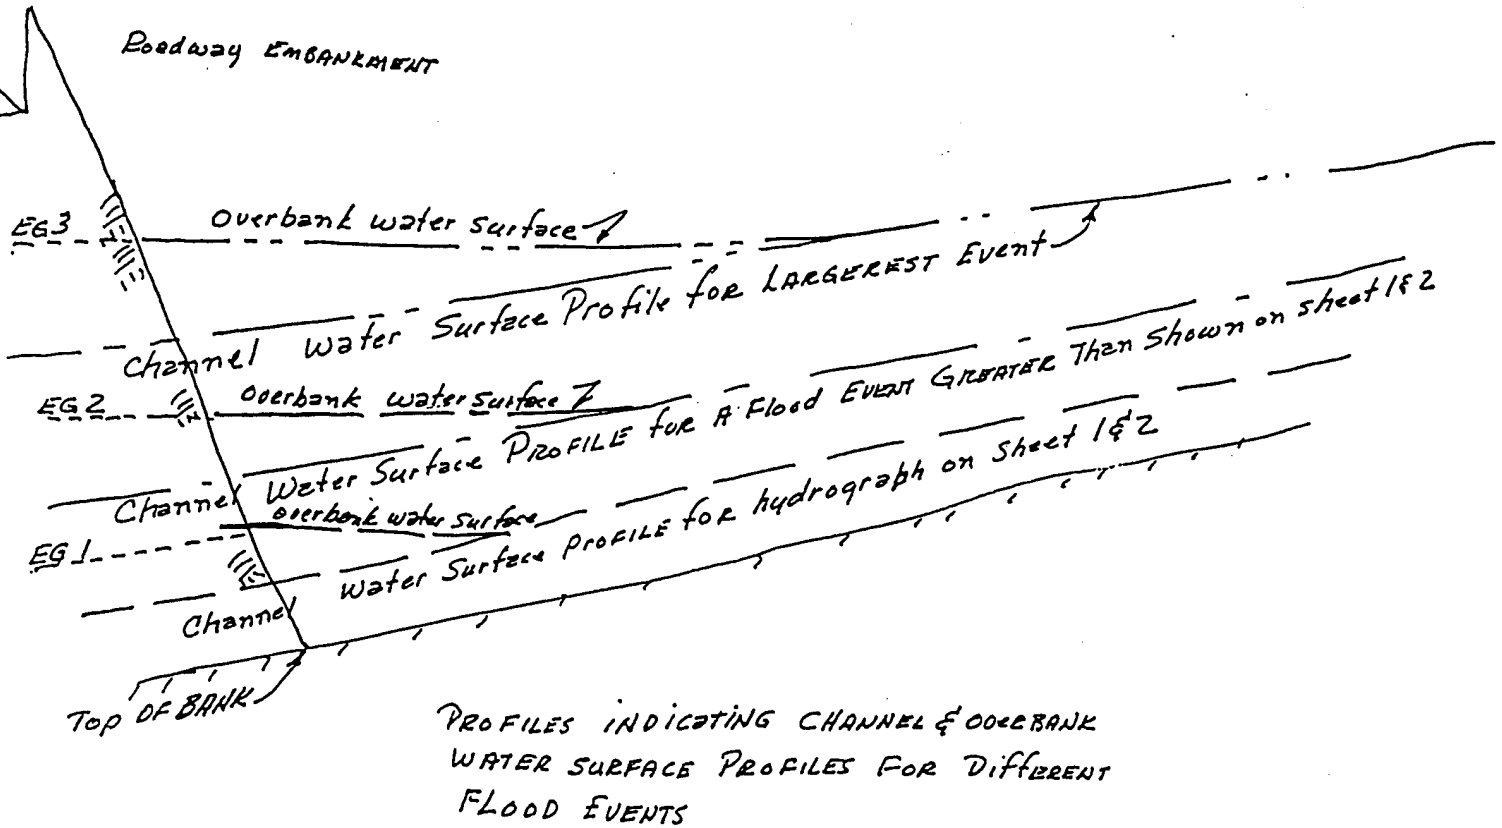 Roadway EMBANKMENT
EG3
Overbank water surface
Channel Water Surface Profile for LARGEREST Event
EG2
Overbank water surface
Channel Water Surface PROFILE for A Flood EVENT GREATER Than Shown on sheet 1&2
EG1
overbank water surface
Channel Water Surface PROFILE for hydrograph on Sheet 1&2
Top OF BANK
PROFILES INDICATING CHANNEL & OVERBANK
WATER SURFACE PROFILES FOR DIFFERENT
FLOOD EVENTS